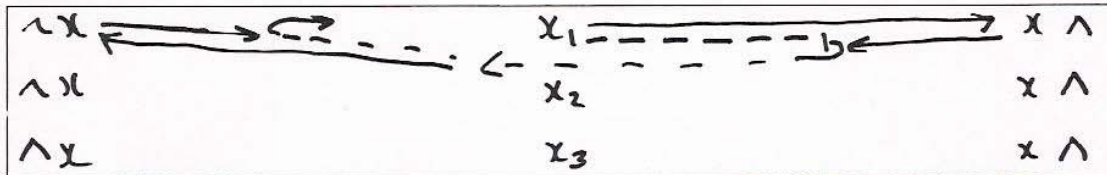 ^ x x1 x ^
^ x x2 x ^
^ x x3 x ^